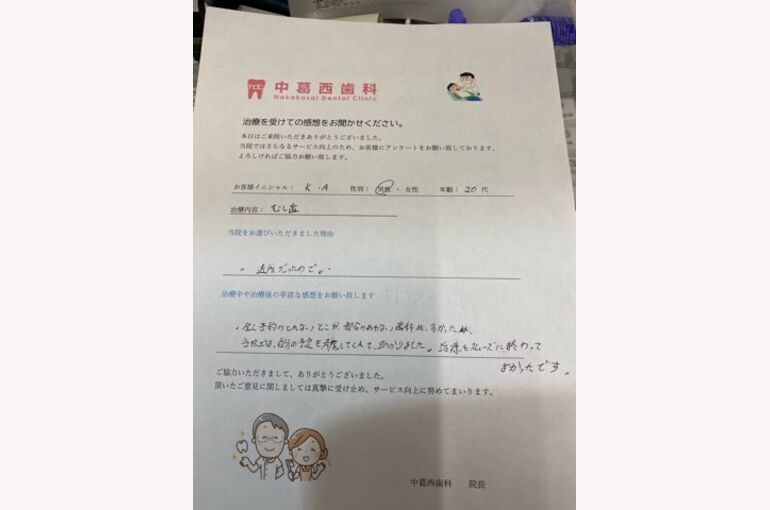 中葛西歯科
Nakakasai Dental Clinic
治療を受けての感想をお聞かせください。
本日はご来院いただきありがとうございました。
当院ではさらなるサービス向上のため、お客様にアンケートをお願い致しております。
よろしければご協力お願い致します。
お客様イニシャル： K・A 性別：男性・女性 年齢：20代
治療内容： むし歯
当院をお選びいただきました理由
・近所だったので。
治療中や治療後の率直な感想をお願い致します
・全く予約のとれないとこや、都合のあわない歯科が、多かった が、
当院では、自分の予定を考慮してくれて、助かりました。治療もスムーズに終わって
よかったです。
ご協力いただきまして、ありがとうございました。
頂いたご意見に関しましては真摯に受け止め、サービス向上に努めてまいります。
中葛西歯科 院長